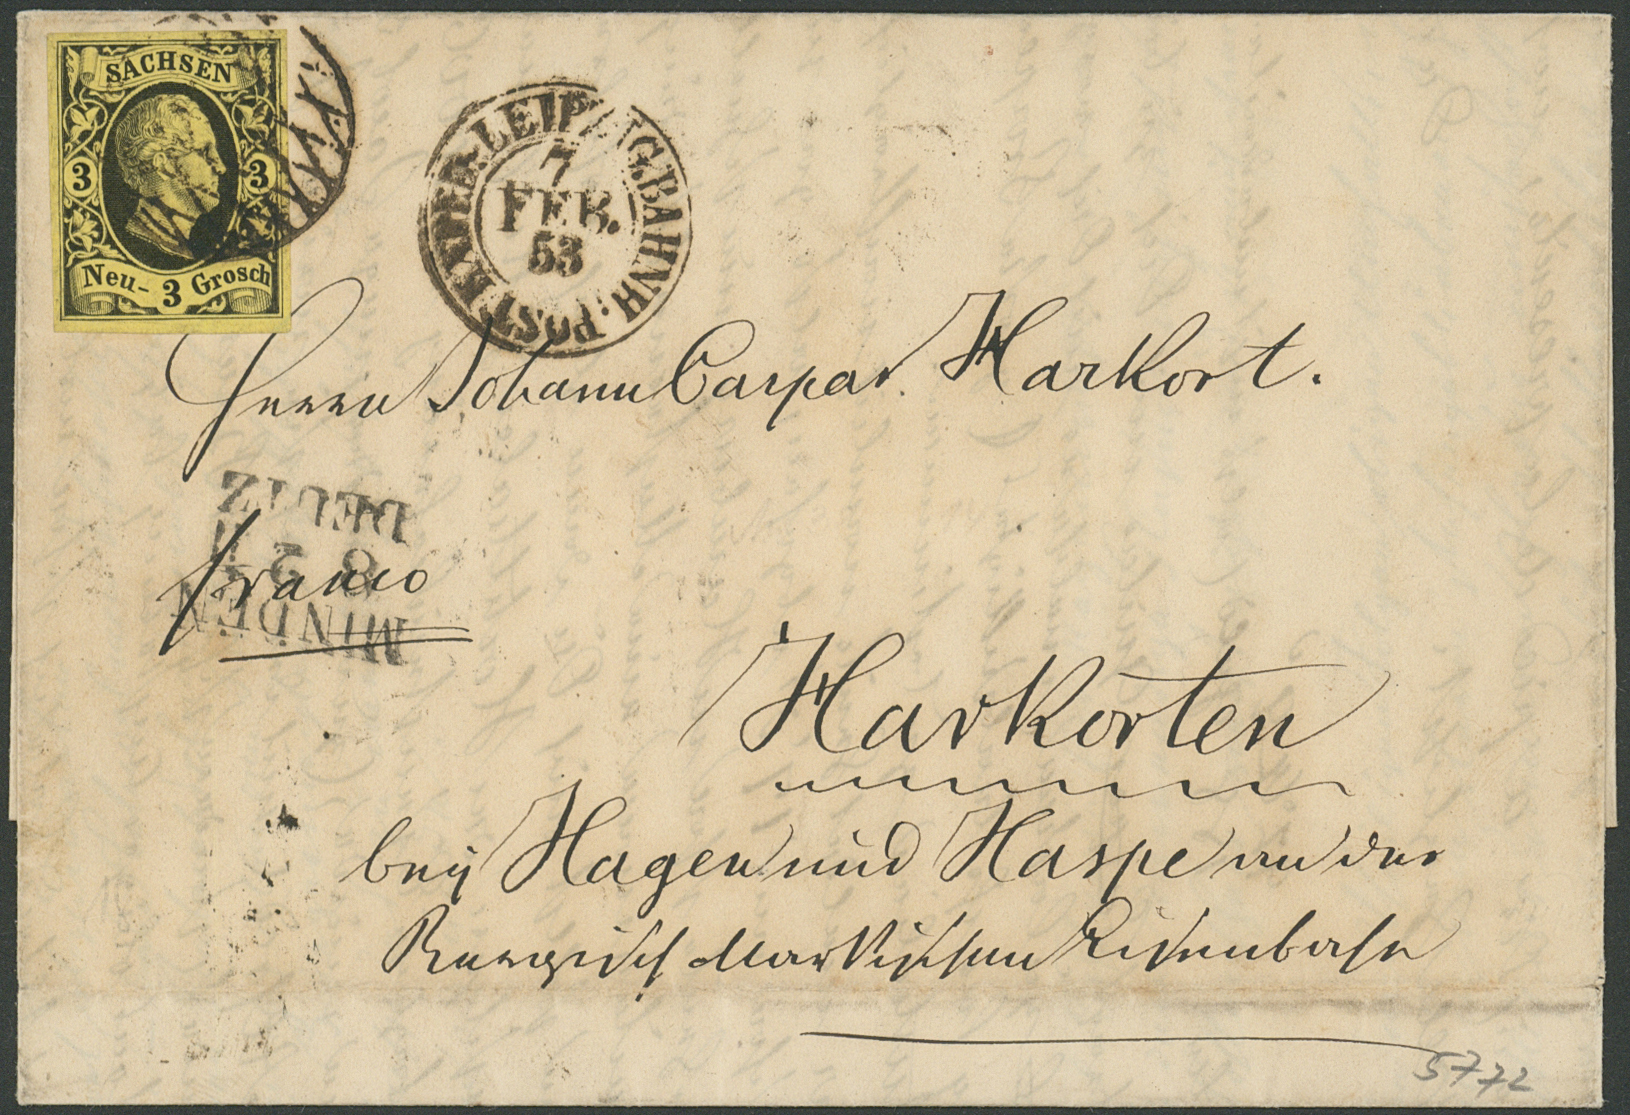 SACHSEN
3 3
Neu- 3 Grosch
POST EXPED. LEIPZIG. BAHNH.
7
FEB.
53
Herrn Johann Caspar Harkort.
MINDEN
8 2 II
DEUTZ
franco
Harkorten
bey Hagen und Haspe an der
Bergisch Märkischen Eisenbahn
5772